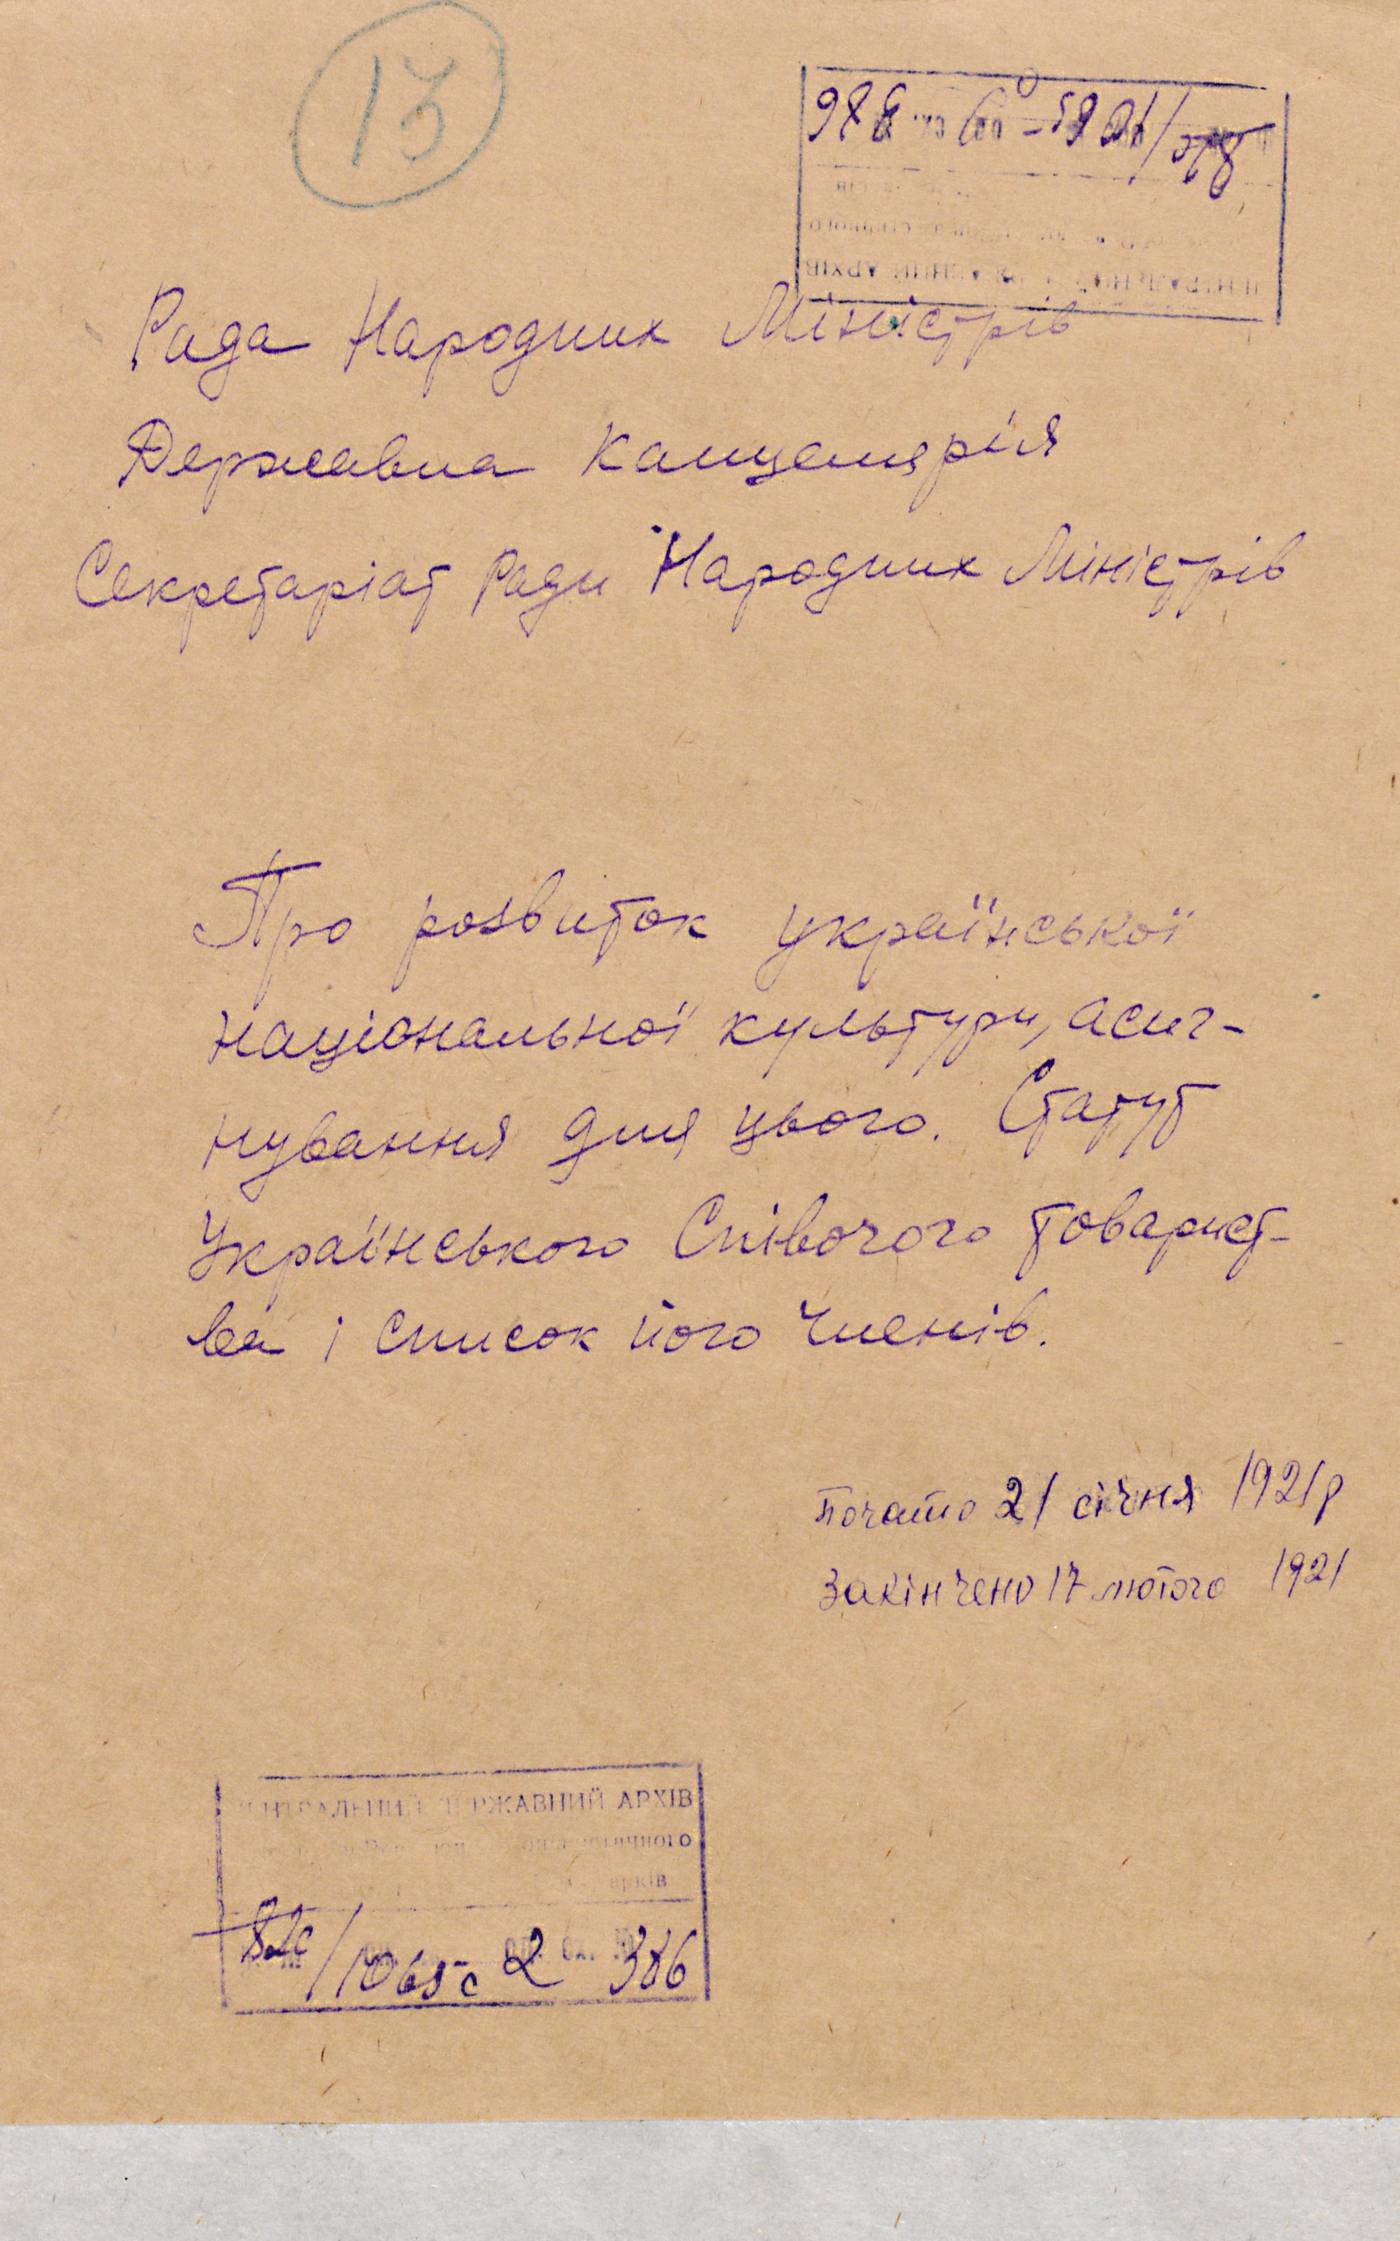 13
Рада Народних Міністрів
Державна Канцелярія
Секретаріат Ради Народних Міністрів
Про розвиток української
національної культури, асиг-
нування для цього. Статут
Українського Співочого товарист-
ва і список його членів.
Почато 21 січня 1921 р
Закінчено 17 лютого 1921
ЦЕНТРАЛЬНИЙ ДЕРЖАВНИЙ АРХІВ
1065 с 2 386